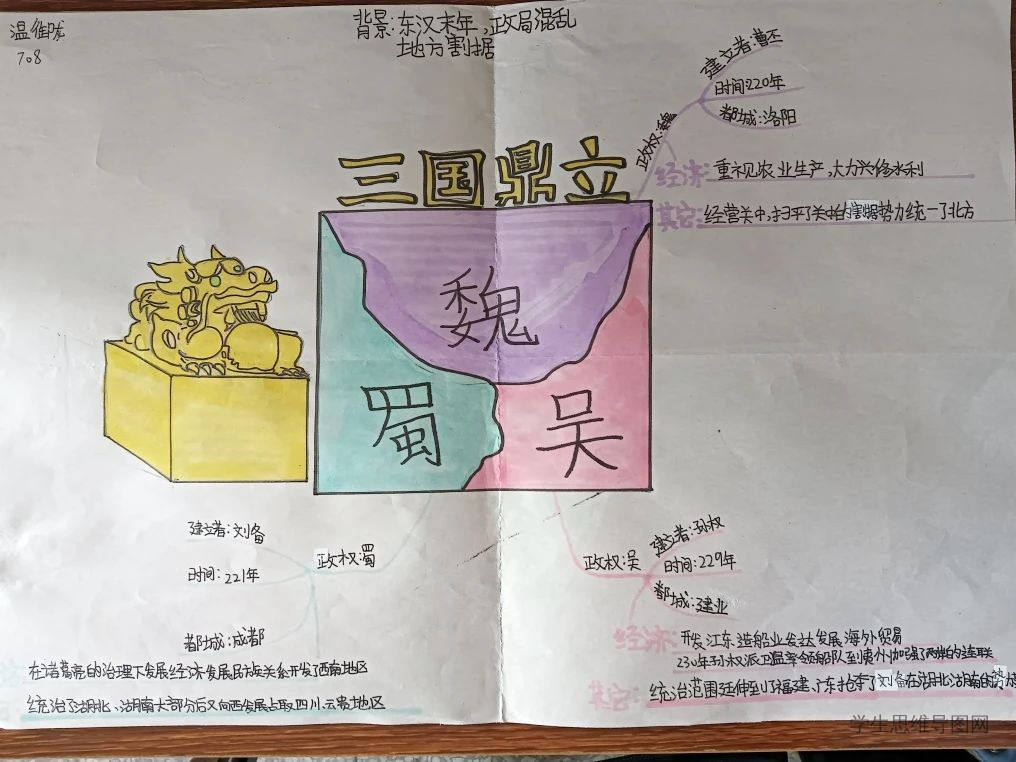 温
708
背景:东汉末年,政局混乱
地方割据
三国鼎立
魏
蜀
吴
政权:魏
建立者:曹丕
时间:220年
都城:洛阳
经济:重视农业生产,大力兴修水利
其它:经营关中,扫平了关中的割据势力统一了北方
政权:蜀
建立者:刘备
时间:221年
都城:成都
在诸葛亮的治理下发展经济发展民族关系开发了西南地区
统治了湖北、湖南大部分后又向西发展占取四川、云贵地区
政权:吴
建立者:孙权
时间:229年
都城:建业
经济:开发江东造船业发达发展海外贸易
230年孙权派卫温率领船队到夷州加强了两岸的连联
其它:统治范围延伸到了福建、广东抢夺了刘备在湖北湖南的势
学生思维导图网